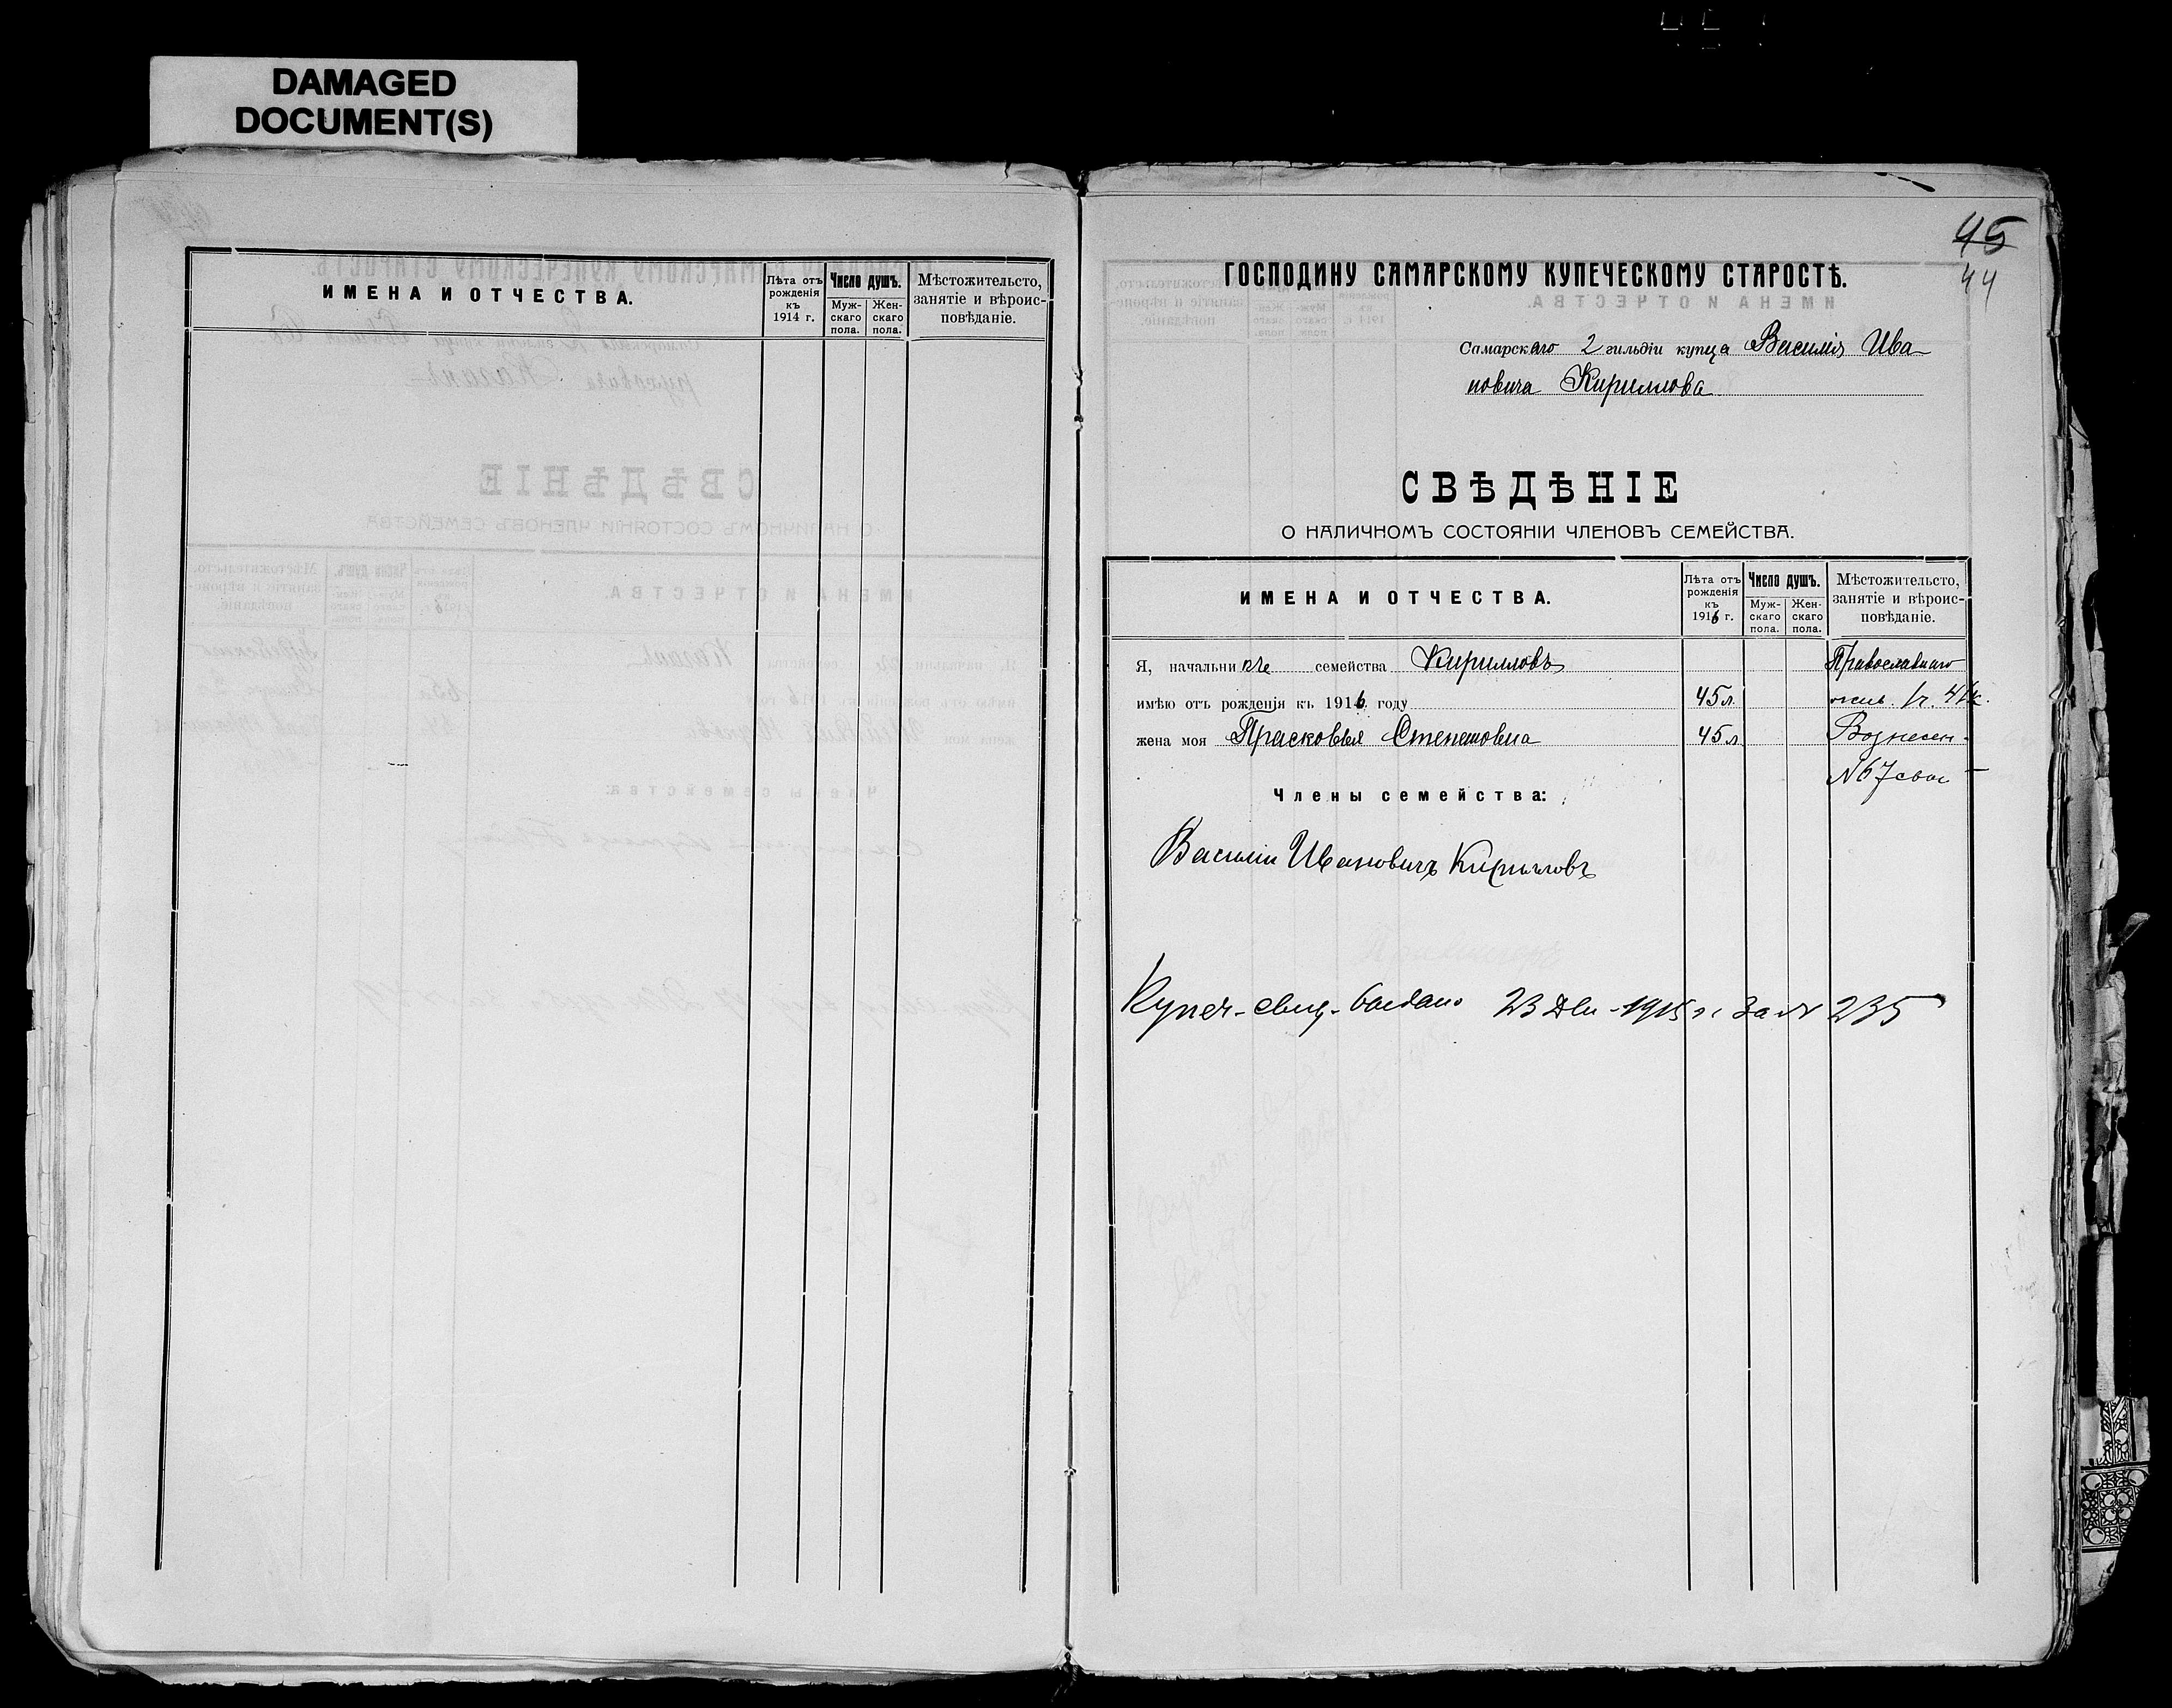 DAMAGED
DOCUMENT(S)
ИМЕНА И ОТЧЕСТВА.
Лѣта отъ рожденія къ 1914 г.
Число душъ.
Муж-скаго пола.
Жен-скаго пола.
Мѣстожительсто, занятіе и вѣроис-повѣданіе.
45
44
ГОСПОДИНУ САМАРСКОМУ КУПЕЧЕСКОМУ СТАРОСТѢ.
Самарскаго 2 гильдіи купца Василія Ива-
новича Кириллова
СВѢДѢНІЕ
О НАЛИЧНОМЪ СОСТОЯНІИ ЧЛЕНОВЪ СЕМЕЙСТВА.
ИМЕНА И ОТЧЕСТВА.
Лѣта отъ рожденія къ 1916 г.
Число душъ.
Муж-скаго пола.
Жен-скаго пола.
Мѣстожительсто, занятіе и вѣроис-повѣданіе.
Я, начальникъ семейства Кирилловъ Православнаго
имѣю отъ рожденія къ 1916 году 45 л.
жена моя Прасковья Степановна 45 л Вознесен-
№ 67
Члены семейства:
Василій Ивановичъ Кирилловъ
Купеч. свид. 23 Дек. 1915 г. за № 235